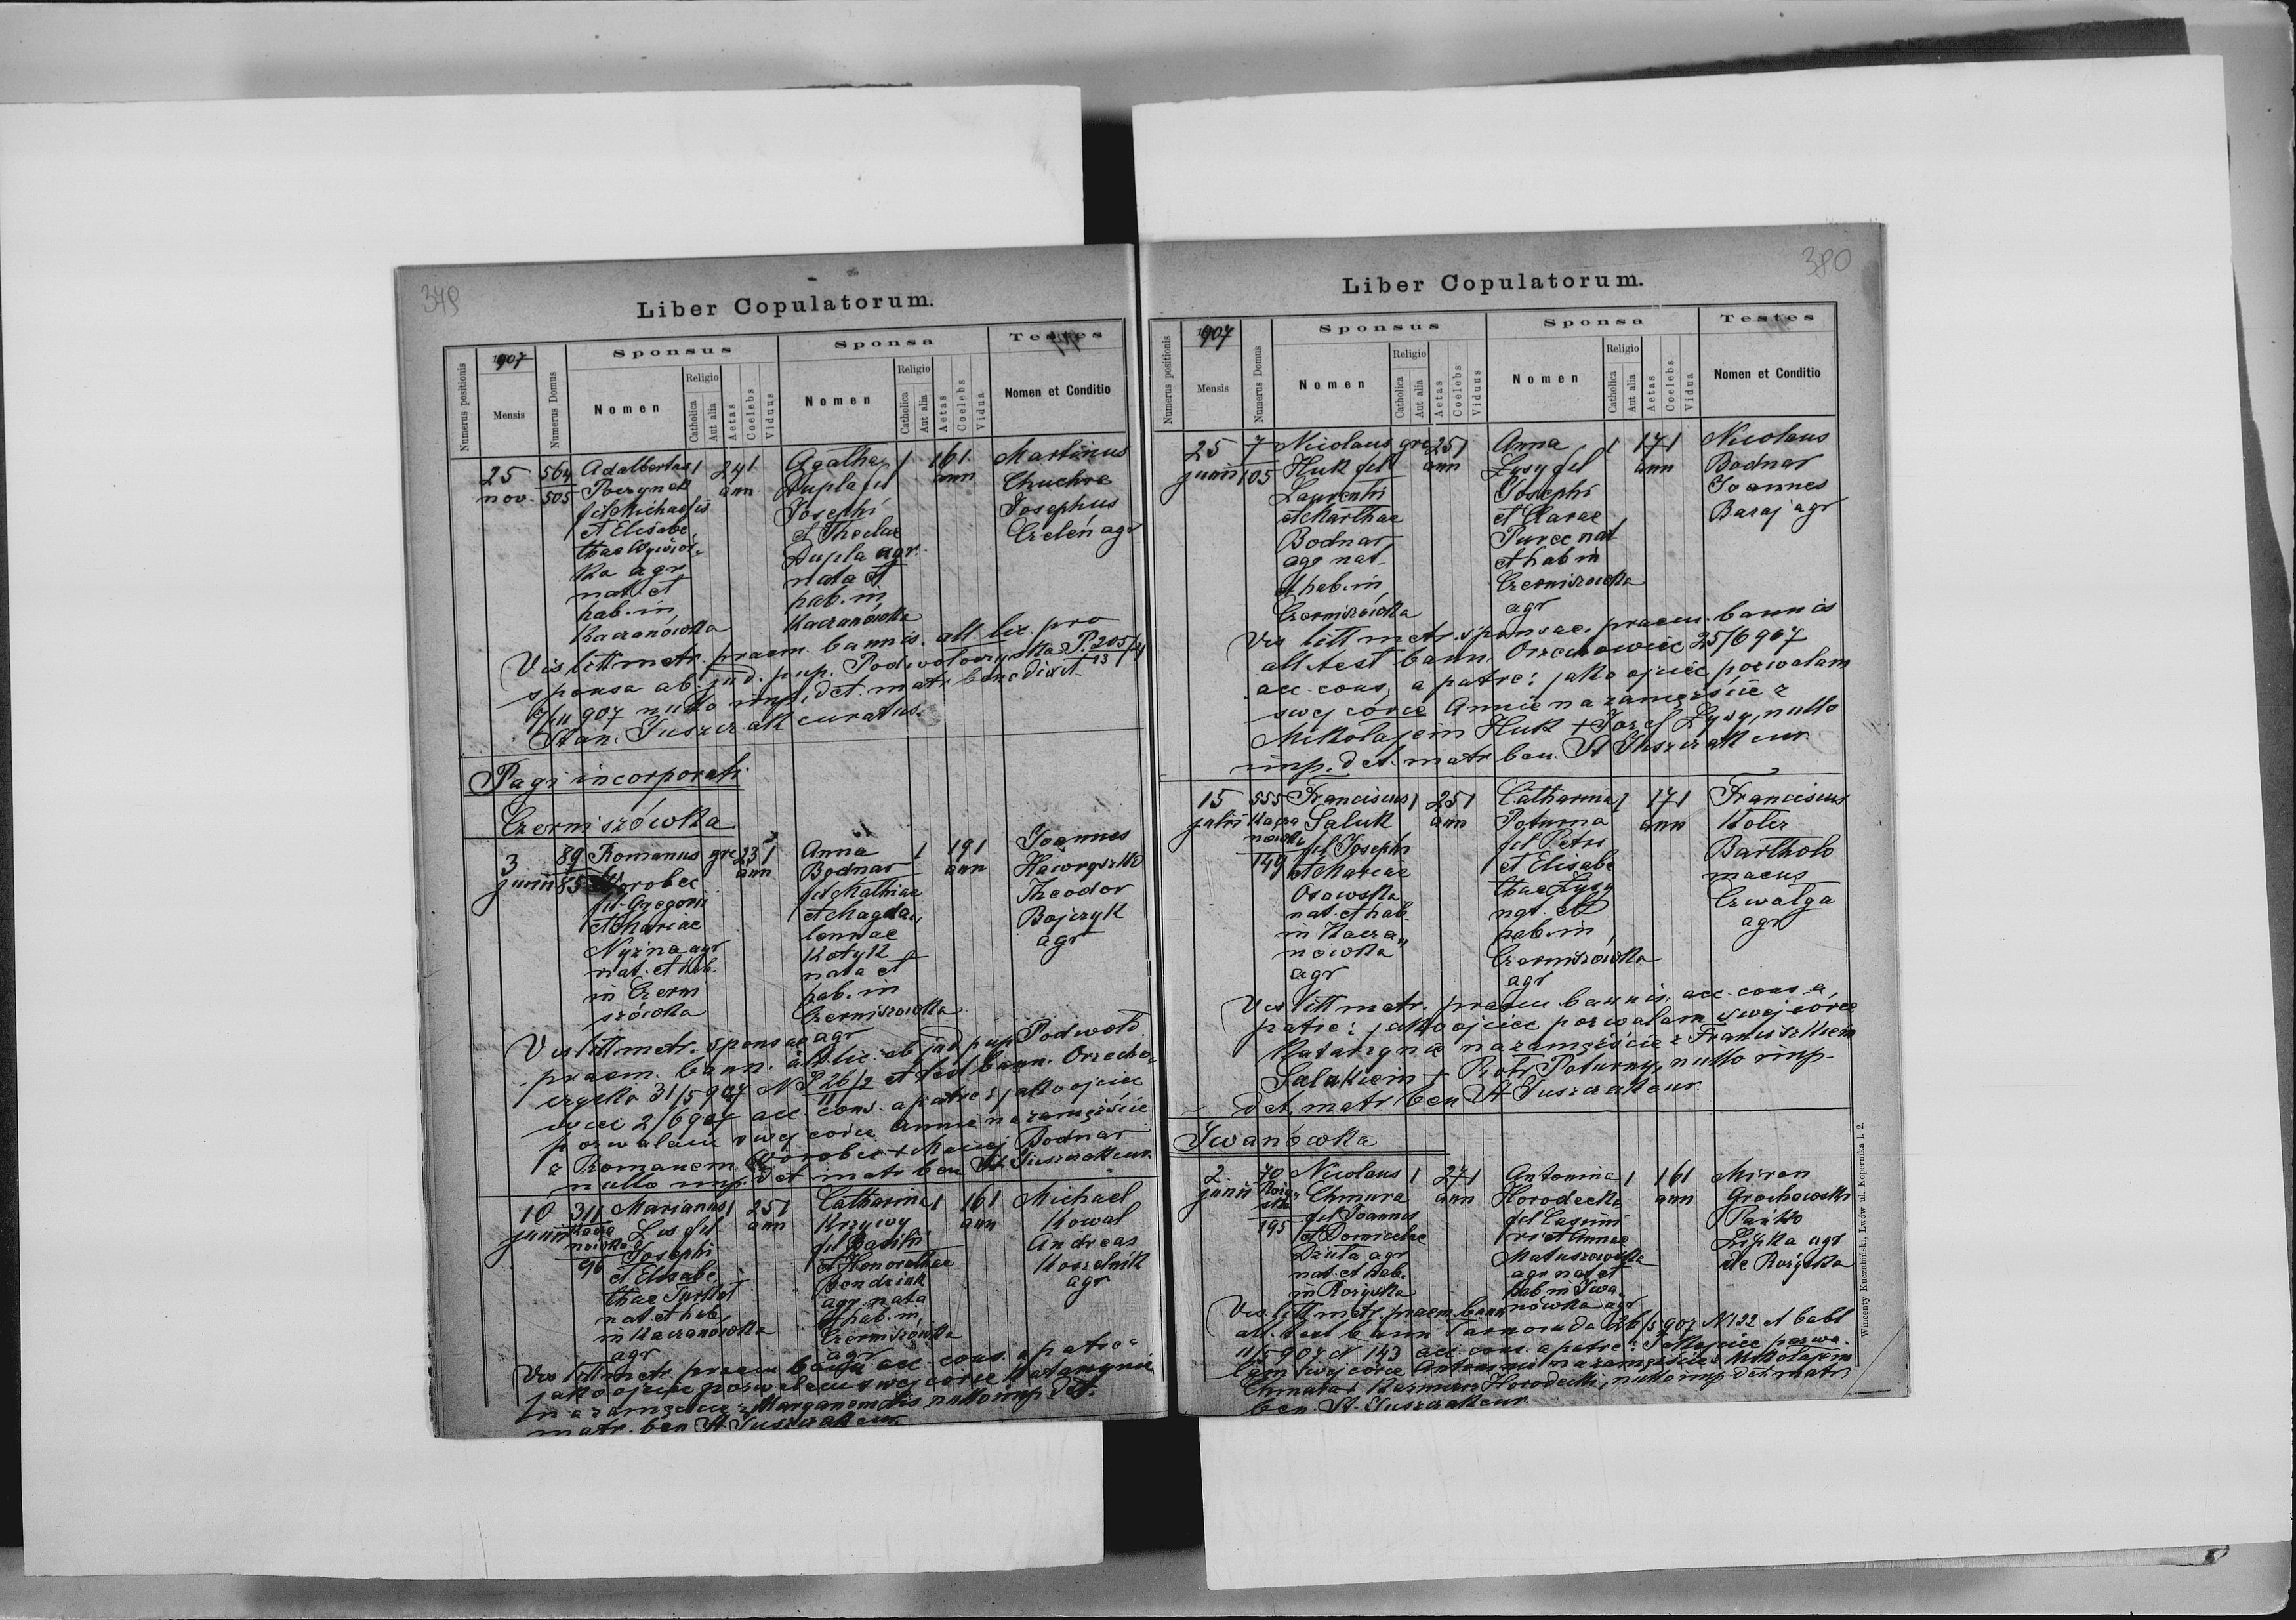 379
Liber Copulatorum.
Numerus positionis
1907
Mensis
Numerus Domus
Sponsus
Nomen
Religio
Catholica
Aut alia
Aetas
Coelebs
Viduus
Sponsa
Nomen
Religio
Catholica
Aut alia
Aetas
Coelebs
Vidua
Testes
Nomen et Conditio
25
nov.
564
505
Adalbertus 1 24 1
Poczynek ann
fil Michaelis
et Elisabe
thae
ka agr
nat. et
hab. in
Kaczanówka
Agatha 1 16 1
Dupla fil ann
Josephi
et Theclae
Dupla agr.
nata et
hab. in
Kaczanówka
Martinus
Chuchre
Josephus
Czeleń agr
Vis litt metr. praem. bannis. all. lic. pro
sponsa ab. jud. pup. Podwołoczyska P. 205/4
13
907 nullo imp. det. matr benedixit
Stan. Juszczak curatus.
Pagi incorporati
Czerniszówka
3
junii
89
85
Romanus grc 23 1
Worobec ann
fil Gregorii
et Mariae
Nyżna agr
nat. et hab.
in Czerni
szówka
Anna 1 19 1
Bodnar ann
fil Mathiae
et Magda
lennae
Kotyk
nata et
hab. in
Czerniszówka
agr
Joannes
Hawryszko
Theodor
Bojczyk
agr
Vis litt metr. sponsae
praem. bann. all. lic. ab jud pup Podwoło
czyska 31/5 907 N P 26/2 et test bann. Orzecho
11
wiec 2/6 907 acc. cons. a patre: jako ojciec
pozwalam swej córce Annie na zamęście
z Romanem Worobec + Maciej Bodnar
nullo imp. det matr ben St Juszczak cur.
10
junii
311
Kacza
nówka
96
Marianus 1 25 1
Lis fil ann
Josephi
et Elisabe
thae
nat. et hab.
in Kaczanówka
agr
Catharina 1 16 1
Krzywy ann
fil Basilii
et Honorathae
Bendziuk
agr. nata
et hab. in
Czerniszówka
agr
Michael
Kowal
Andreas
Koszelnik
agr
Vis litt metr. praem bannis acc. cons. a patre:
jako ojciec pozwalam swej córce Katarzynie
na zamęście z Maryanem Lis, nullo imp det.
matr. ben St Juszczak cur.
380
Liber Copulatorum.
Numerus positionis
1907
Mensis
Numerus Domus
Sponsus
Nomen
Religio
Catholica
Aut alia
Aetas
Coelebs
Viduus
Sponsa
Nomen
Religio
Catholica
Aut alia
Aetas
Coelebs
Vidua
Testes
Nomen et Conditio
25
junii
7
105
Nicolaus grc 25 1
Huk fil ann
Laurentii
et Marthae
Bodnar
agr nat.
et hab. in
Czerniszówka
Anna 1 17 1
Łysy fil ann
Josephi
et Clarae
Puree nat
et hab in
Czerniszówka
agr
Nicolaus
Bodnar
Joannes
Baraj agr
Vis litt metr. sponsae. praem. bannis
all. test bann. Orzechowiec 25/6 907
acc. cons. a patre: jako ojciec pozwalam
swej córce Annie na zamęście z
Mikołajem Huk + Józef Łysy, nullo
imp. det. matr ben. St Juszczak cur.
15
julii
555
Kacza
nówka
149
Franciscus 1 25 1
Saluk ann
fil Josephi
et Mariae
Osowska
nat. et hab
in Kacza
nówka
agr
Catharina 1 17 1
Poturna ann
fil Petri
et Elisabe
thae Łysy
nat. et
hab. in
Czerniszówka
agr
Franciscus
Kolcz
Bartholo
maeus
Czwałga
agr
Vis litt metr. praem bannis. acc. cons a
patre: jako ojciec pozwalam swej córce
Katarzynie na zamęście z Franciszkiem
Salukiem + Piotr Poturny, nullo imp.
det. matr ben St Juszczak cur.
Iwanówka
2
junii
70
195
Nicolaus 1 27 1
Chmura ann
fil Joannis
et Domicelae
Dziuta agr
nat. et hab.
in Rożyska
Antonina 1 16 1
Horodecka ann
fil Casimi
ri et Annae
Matuszewska
agr nat et
hab in Iwa
nówka agr
Miron
Grochowski
Pańko
Lipka agr
de Rożyska
Vis litt metr. praem. bann
all. test bann Tarnoruda 26/5 907 N 122 et
11/5 907 N 143 acc. cons. a patre: Jako ojciec pozwa
lam swej córce Antoninie na zamęście z Mikołajem
Chmura + Kazimierz Horodecki, nullo imp. det. matr.
ben. St. Juszczak cur
Wincenty Kuczabiński, Lwów ul. Kopernika l. 2.